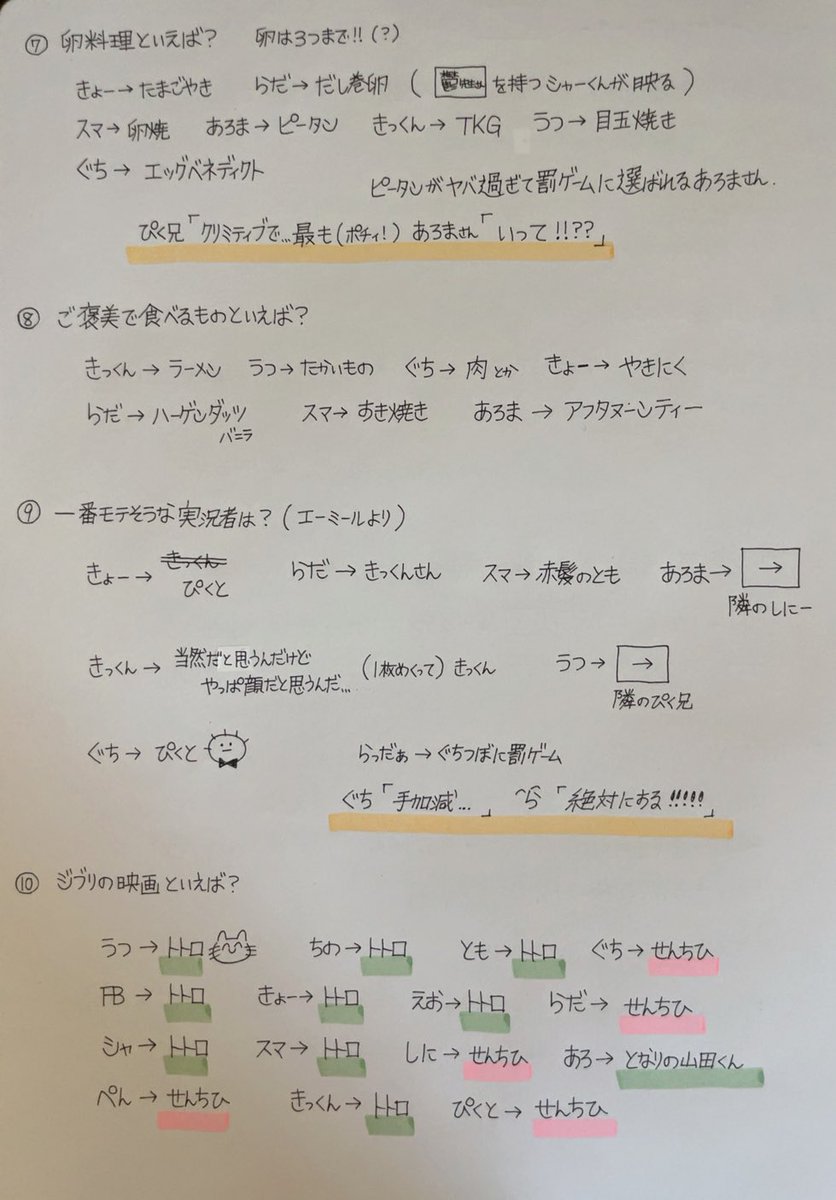 ⑦ 卵料理といえば? 卵は3つまで!!(?)
きょー→たまごやき らだ→だし巻卵 ( を持つシャーくんが映る)
スマ→卵焼 あろま→ピータン きっくん→TKG うつ→目玉焼き
ぐち→エッグベネディクト
ピータンがヤバ過ぎて罰ゲームに選ばれるあろません.
ぴく兄「クリミティブで...最も(ポチィ!) あろまさん「いって!!??」
⑧ ご褒美で食べるものといえば?
きっくん→ラーメン うつ→たかいもの ぐち→肉とか きょー→やきにく
らだ→ハーゲンダッツ スマ→すき焼き あろま→アフタヌーンティー
バニラ
⑨ 一番モテそうな実況者は?(エーミールより)
きょー→きっくん らだ→きっくんさん スマ→赤髪のとも あろま→→
ぴくと
隣のしにー
きっくん→当然だと思うんだけど (1枚めくって)きっくん うつ→→
やっぱ顔だと思うんだ...
隣のぴく兄
ぐち→ぴくと らっだぁ→ぐちつぼに罰ゲーム
ぐち「手加減...」 ぺら「絶対にする!!!!!」
⑩ ジブリの映画といえば?
うつ→トトロ ちの→トトロ とも→トトロ ぐち→せんちひ
FB→トトロ きょー→トトロ えお→トトロ らだ→せんちひ
シャ→トトロ スマ→トトロ しに→せんちひ あろ→となりの山田くん
ぺん→せんちひ きっくん→トトロ ぴくと→せんちひ